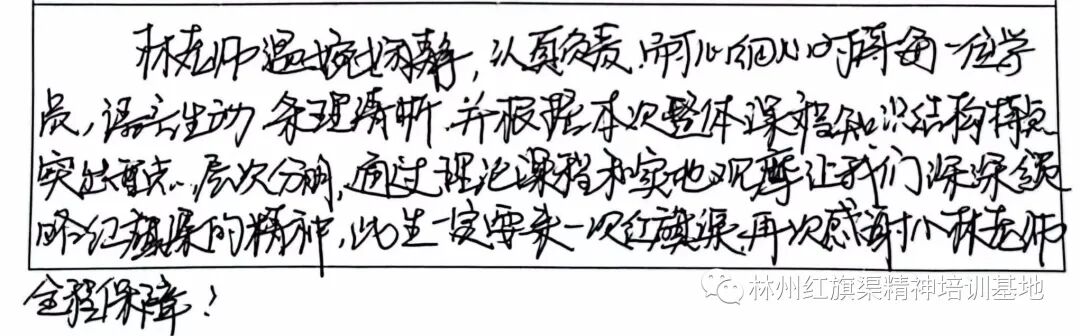 林老师温婉娴静,认真负责,耐心细心对待每一位学
员,语言生动 条理清晰,并根据本次整体课程知识结构特点
突出重点、层次分明,通过理论课程和实地观摩让我们深深领
略红旗渠的精神,此生一定要来一次红旗渠,再次感谢小林老师
全程保障!
林州红旗渠精神培训基地